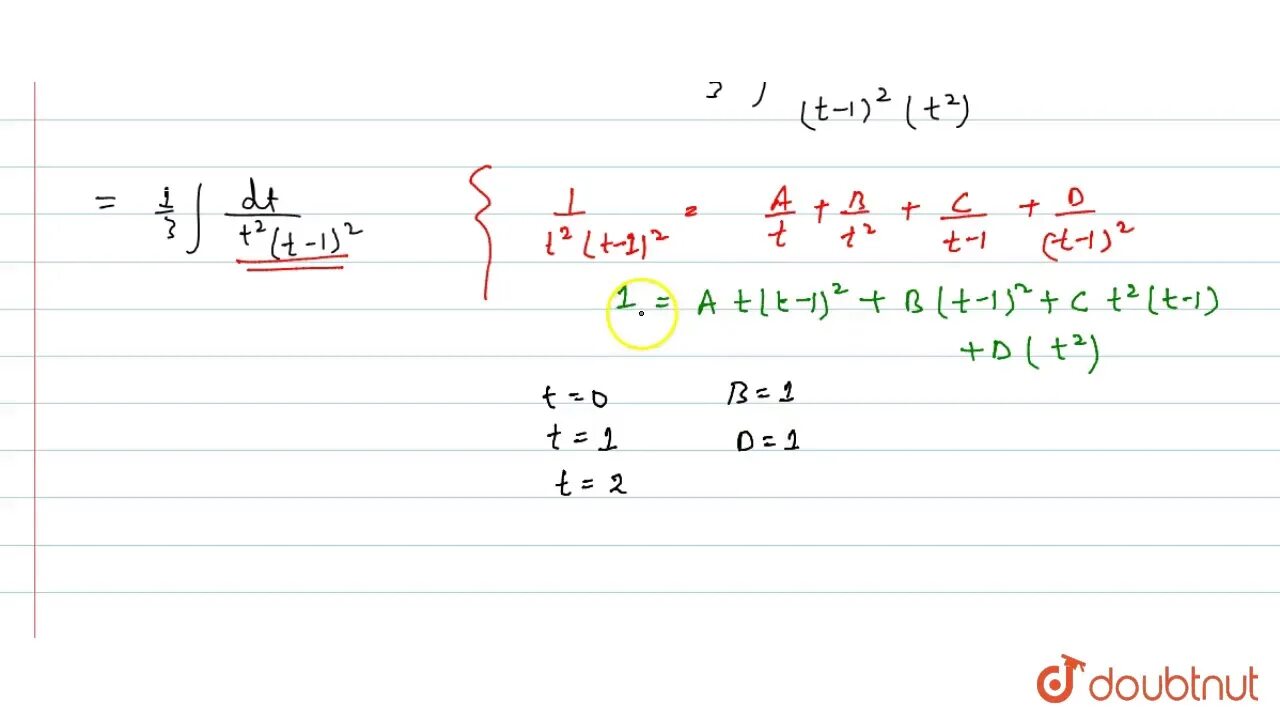 (t-1)² (t²)
= 1/3 ∫ dt / t²(t-1)² { 1 / t²(t-1)² = A/t + B/t² + C/t-1 + D/(t-1)²
1 = A t(t-1)² + B(t-1)² + C t²(t-1)
+ D(t²)
t = 0 B = 1
t = 1 D = 1
t = 2
doubtnut